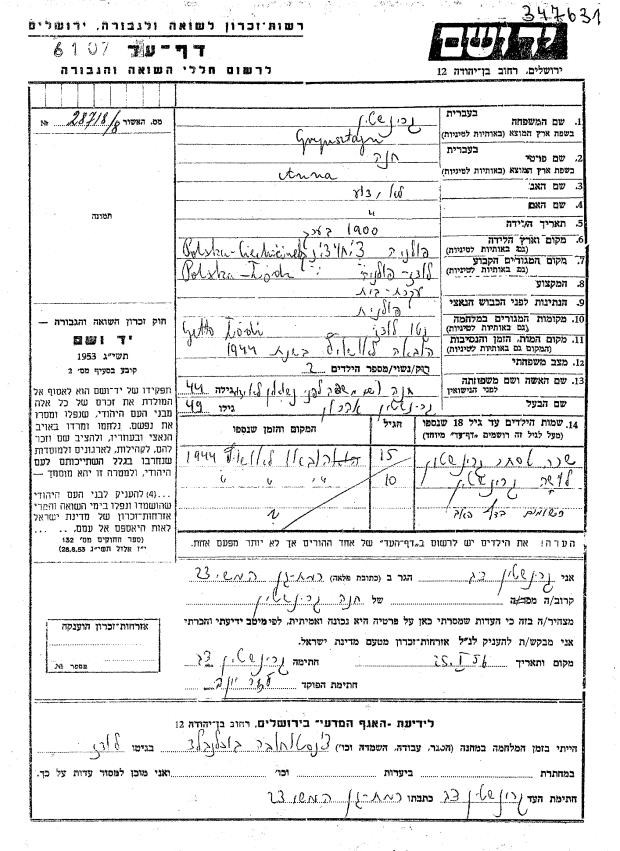 347631
רשות-זכרון לשואה ולגבורה, ירושלים
יד ושם
דף-עד
6107
לרשום חללי השואה והגבורה
ירושלים, רחוב בן-יהודה 12
מס. האשור 28718/8 №
תמונה
חוק זכרון השואה והגבורה —
יד ושם
תשי״ג 1953
קובע בסעיף מס׳ 2
תפקידו של יד־ושם הוא לאסוף אל
המולדת את זכרם של כל אלה
מבני העם היהודי, שנפלו ומסרו
את נפשם, נלחמו ומרדו באויב
הנאצי ובעוזריו, ולהציב שם וזכר
להם, לקהילות, לארגונים ולמוסדות
שנחרבו בגלל השתייכותם לעם
היהודי, ולמטרה זו יהא מוסמך —
...(4) להעניק לבני העם היהודי
שהושמדו ונפלו בימי השואה והמרי
אזרחות-זכרון של מדינת ישראל
לאות היאספם אל עמם. . . .
(ספר החוקים מס׳ 132
י״ז אלול תשי״ג 28.8.53)
אזרחות-זכרון הוענקה
מספר №
1. שם המשפחה בעברית גרינשטין
בשפת ארץ המוצא (באותיות לטיניות) Grynsztajn
2. שם פרטי בעברית חנה
בשפת ארץ המוצא (באותיות לטיניות) Anna
3. שם האב לא ידוע
4. שם האם "
5. תאריך הלידה 1900 בערך
6. מקום וארץ הלידה (גם באותיות לטיניות) פולניה Polska
7. מקום המגורים הקבוע (גם באותיות לטיניות) לודז - פולניה Polska - Łódź
8. המקצוע עקרת-בית
9. הנתינות לפני הכבוש הנאצי פולנית
10. מקומות המגורים במלחמה (גם באותיות לטיניות) גטו לודז Getto Łódź
11. מקום המות, הזמן והנסיבות (המקום גם באותיות לטיניות) בשנת 1944
12. מצב משפחתי רווק/נשוי/מספר הילדים 2
13. שם האשה ושם משפחתה לפני הנישואין חנה גילה 44
שם הבעל גרינשטין אהרון גילו 49
14. שמות הילדים עד גיל 18 שנספו (מעל לגיל זה רושמים ״דף-עד״ מיוחד) הגיל המקום והזמן שנספו
שרה אסתר גרינשטין 15 1944
גרינשטין 10 " " "
רשומים בדף האב
הערה! את הילדים יש לרשום ב״דף-העד״ של אחד ההורים אך לא יותר מפעם אחת.
אני גרינשטין דב הגר ב (כתובת מלאה) רמת-גן המשי 23
קרוב/ה מכר/ה של חנה גרינשטין
מצהיר/ה בזה כי העדות שמסרתי כאן על פרטיה היא נכונה ואמיתית, לפי מיטב ידיעתי והכרתי
אני מבקש/ת להעניק לנ״ל אזרחות-זכרון מטעם מדינת ישראל.
מקום ותאריך 25.I.56 חתימה גרינשטין דב
חתימת הפוקד
לידיעת ״האגף המדעי״ בירושלים, רחוב בן-יהודה 12
הייתי בזמן המלחמה במחנה (הסגר, עבודה, השמדה וכו׳) צ׳נסטוחובה בוכנולד בגיטו לודז
במחתרת ביערות וכו׳ ואני מוכן למסור עדות על כך.
חתימת העד גרינשטין דב כתבתו רמת-גן המשי 23